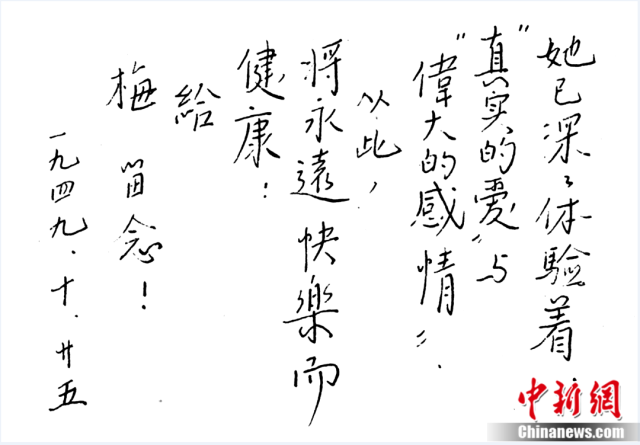 她已深々体驗着
“真实的愛”与
“偉大的感情”.
以此，
將永遠快樂而
健康！
給
梅 留念！
一九四九．十．廿五
中新網
Chinanews.com